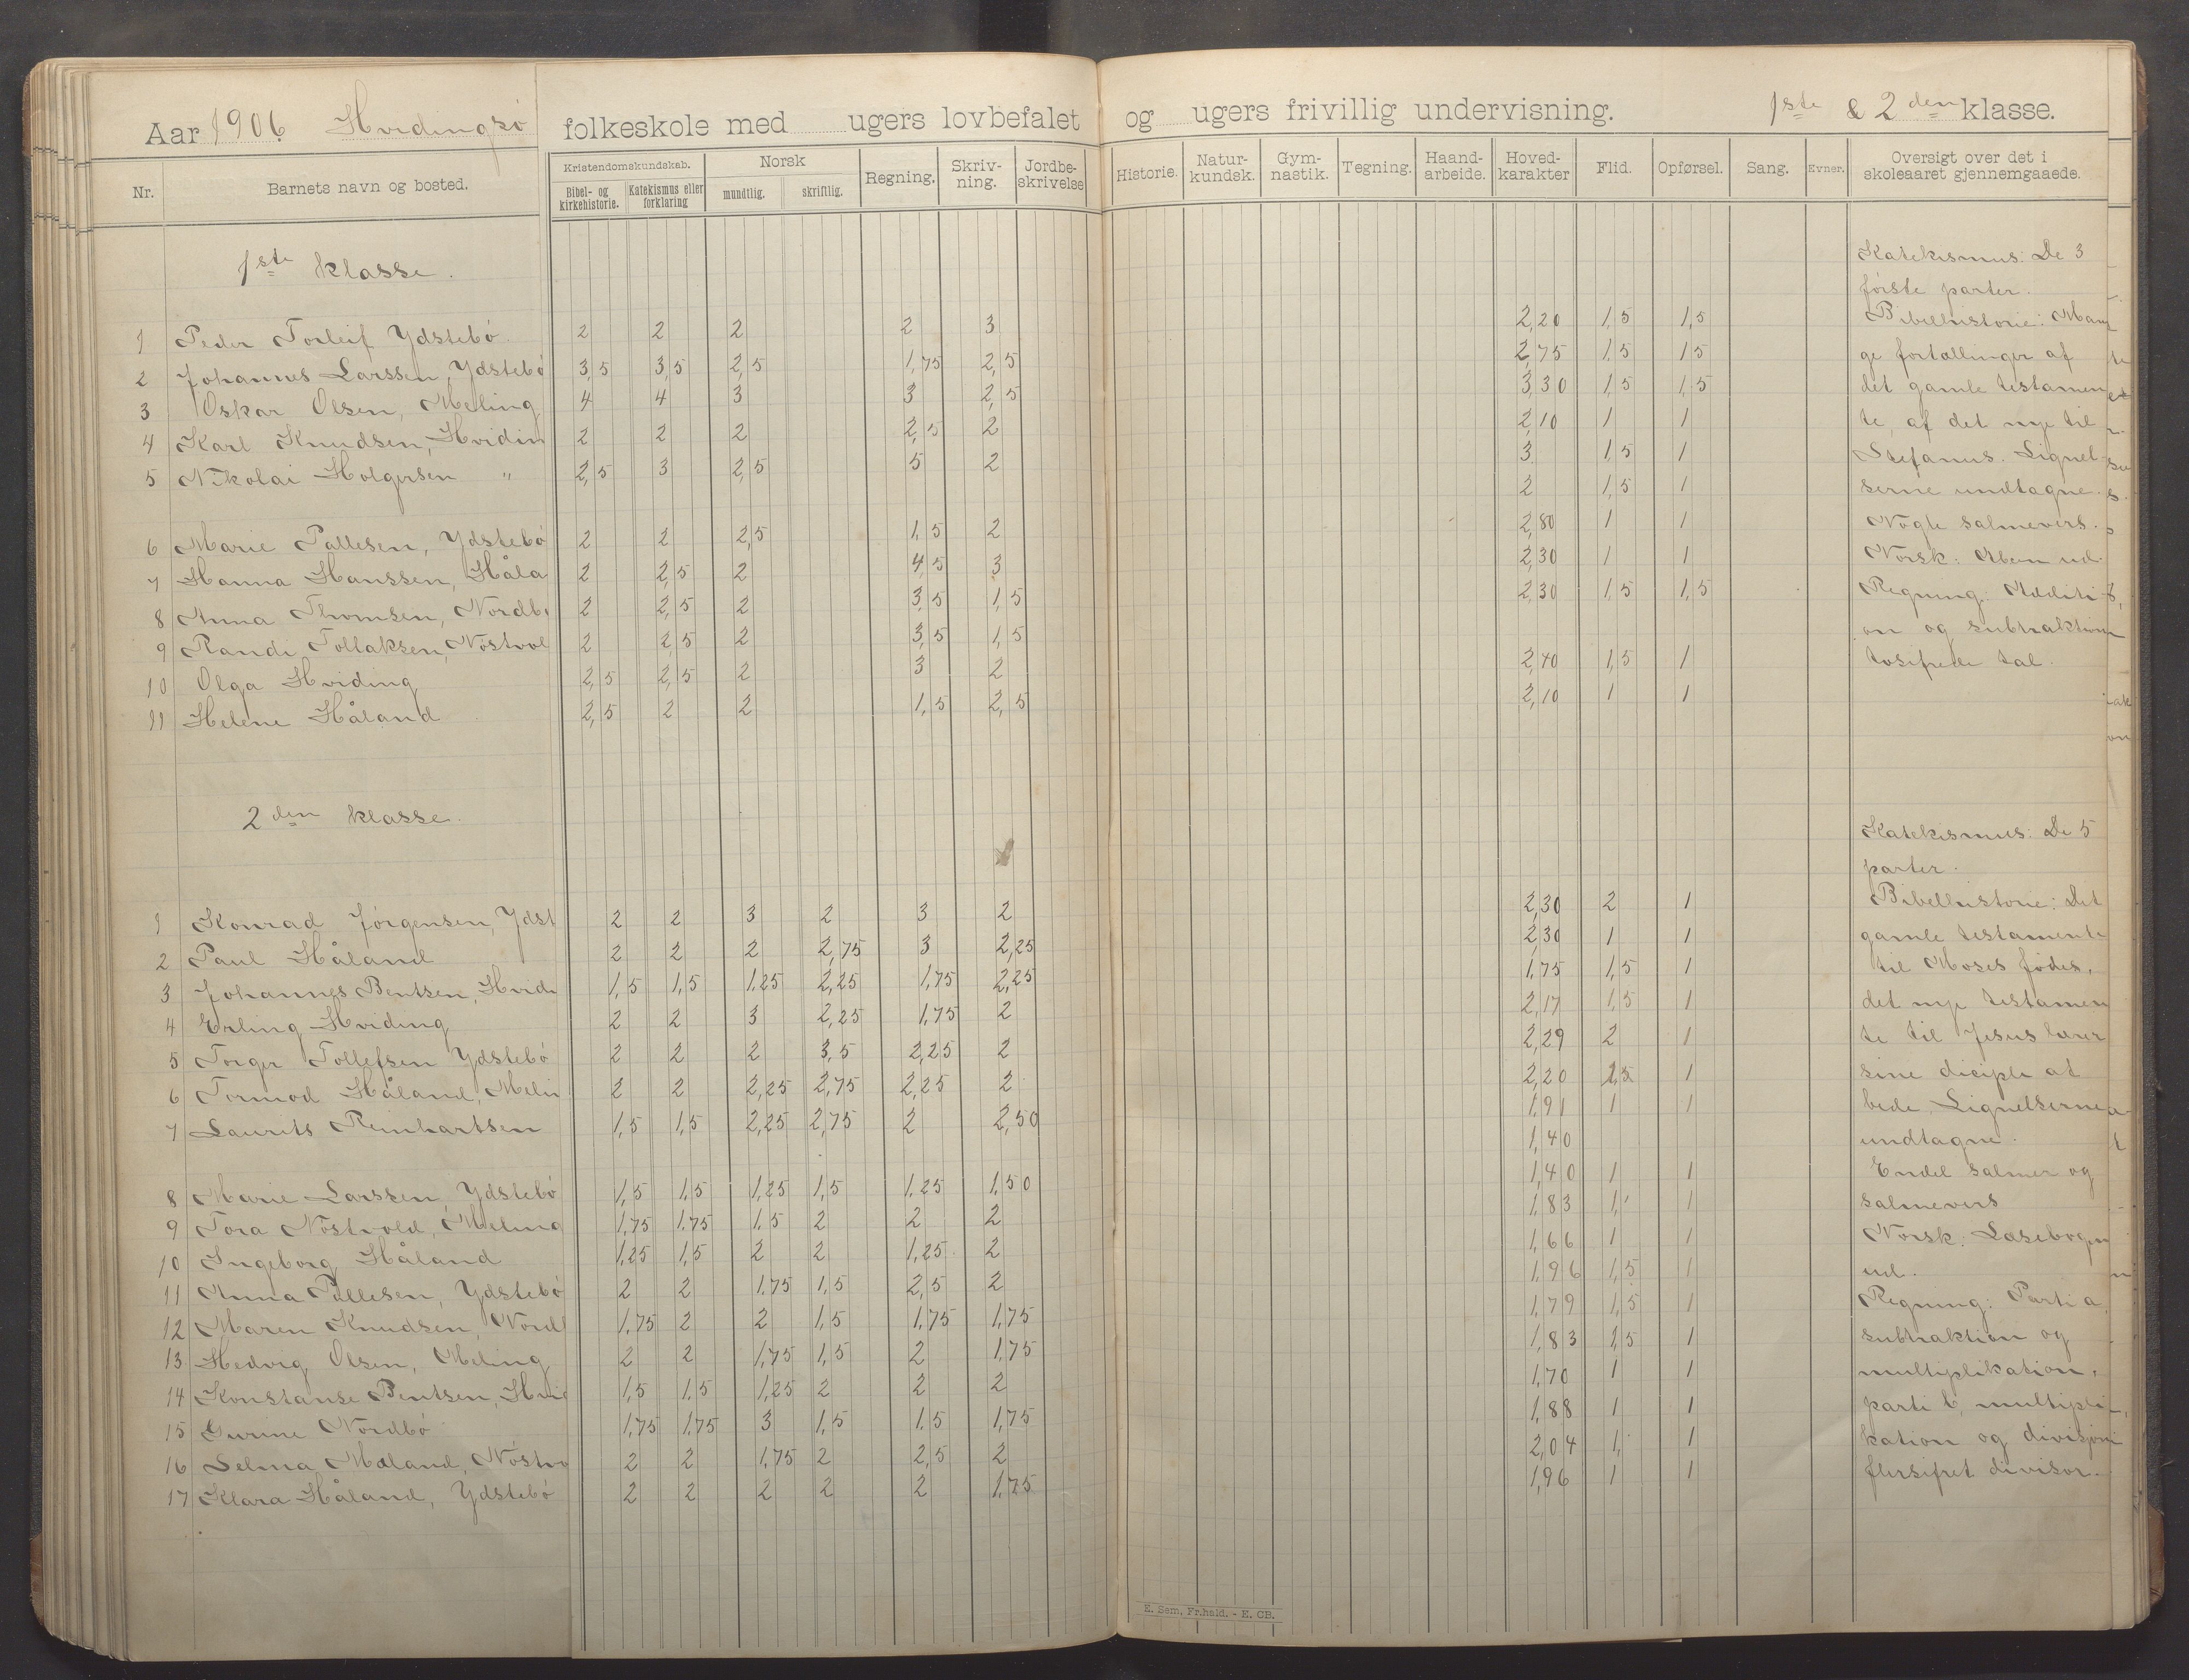 Aar 1906 Hvidingsö folkeskole med ugers lovbefalet og ugers frivillig undervisning. 1ste & 2den klasse.
Nr. Barnets navn og bosted. Kristendomskundskab. Bibel- og kirkehistorie. Katekismus eller forklaring Norsk mundtlig. skriftlig. Regning. Skriv-ning. Jordbe-skrivelse Historie. Natur-kundsk. Gym-nastik. Tegning. Haand-arbeide. Hoved-karakter Flid. Opførsel. Sang. Evner. Oversigt over det i skoleaaret gjennemgaaede.
1ste klasse.
1 Peder Torleif Ydstebö 2 2 2 2 3 2,20 1,5 1,5
2 Johannes Larssen, Ydstebö 3,5 3,5 2,5 1,75 2,5 2,75 1,5 1,5
3 Oskar Olsen, Meling 4 4 3 3 2,5 3,30 1,5 1,5
4 Karl Knudsen, Hvidin 2 2 2 2,5 2 2,10 1 1
5 Nikolai Holgersen " 2,5 3 2,5 5 2 3 1,5 1
6 Marie Pallesen, Ydstebö 2 2 2,5 1,5 2 2 1,5 1
7 Hanna Hanssen, Håla 2 2,5 2 4,5 3 2,80 1 1
8 Anna Thomsen, Nordb 2 2,5 2 3,5 1,5 2,30 1 1
9 Randi Tollaksen, Nöstvol 2 2,5 2 3,5 1,5 2,30 1,5 1,5
10 Olga Hviding 2,5 2,5 2 3 2 2,40 1,5 1
11 Helene Håland 2,5 2 2 1,5 2,5 2,10 1 1
Katekismus: De 3
förste parter.
Bibelhistorie: Man
ge fortællinger af
det gamle testamen
te, af det nye til
Stefanus. Lignel-
serne undtagne.
Nogle salmevers.
Norsk: Aben ud.
Regning: Additi-
on og subtraktion
tosifrede tal.
2den klasse.
1 Konrad Jörgensen, Ydst 2 2 3 2 3 2 2,30 2 1
2 Paul Håland 2 2 2 2,75 3 2,25 2,30 1 1
3 Johannes Bentsen, Hvidi 1,5 1,5 1,25 2,25 1,75 2,25 1,75 1,5 1
4 Erling Hviding 2 2 3 2,25 1,75 2 2,17 1,5 1
5 Torger Tollefsen Ydstebö 2 2 2 3,5 2,25 2 2,29 2 1
6 Tormod Håland, Melin 2 2 2,25 2,75 2,25 2 2,20 1
7 Laurits Reinhartsen 1,5 1,5 2,25 2,75 2 2,50 1,91 1 1
1,40
8 Marie Larssen, Ydstebö 1,5 1,5 1,25 1,5 1,25 1,50 1,40 1 1
9 Tora Nöstvold, Meling 1,75 1,75 1,5 2 2 2 1,83 1, 1
10 Ingeborg Håland 1,25 1,5 2 2 1,25 2 1,66 1 1
11 Anna Pallesen, Ydstebö 2 2 1,75 1,5 2,5 2 1,96 1,5 1
12 Maren Knudsen, Nordb 1,75 2 2 1,5 1,75 1,75 1,79 1,5 1
13 Hedvig Olsen, Meling 2 2 1,75 1,5 2 1,75 1,83 1,5 1
14 Konstanse Bentsen, Hvid 1,5 1,5 1,25 2 2 2 1,70 1 1
15 Gurine Nordbö 1,75 1,75 3 1,5 1,5 1,75 1,88 1 1
16 Selma Mæland, Nöstvo 2 2 1,75 2 2,5 2 2,04 1, 1
17 Klara Håland, Ydstebö 2 2 2 2 2 1,75 1,96 1 1
Katekismus: De 5
parter.
Bibelhistorie: Det
gamle testamente
til Moses födes,
det nye testamen
te til Jesus lærer
sine diciple at
bede. Lignelserne
undtagne.
Endel salmer og
salmevers
Norsk: Læsebogen
ud.
Regning: Parti a,
subtraktion og
multiplikation,
parti b, multipli
kation og divisjon
flersifret divisor.
E. Sem, Fr.hald. - E. CB.